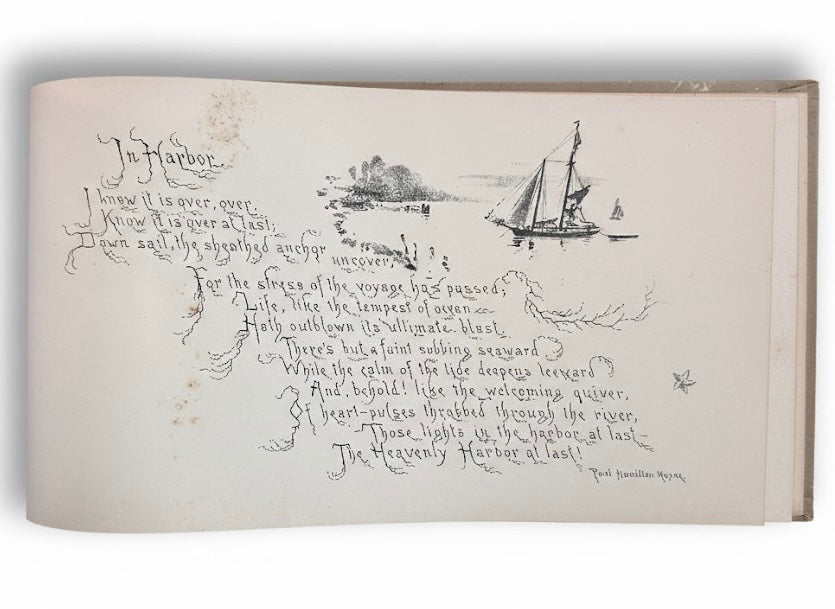 In Harbor.
I know it is over, over,
Know it is over at last;
Down sail, the sheathed anchor uncover,
For the stress of the voyage has passed;
Life, like the tempest of ocean
Hath outblown its ultimate blast.
There's but a faint sobbing seaward
While the calm of the tide deepens leeward
And, behold! like the welcoming quiver,
Of heart-pulses throbbed through the river,
Those lights in the harbor at last—
The Heavenly Harbor at last!
Paul Hamilton Hayne.